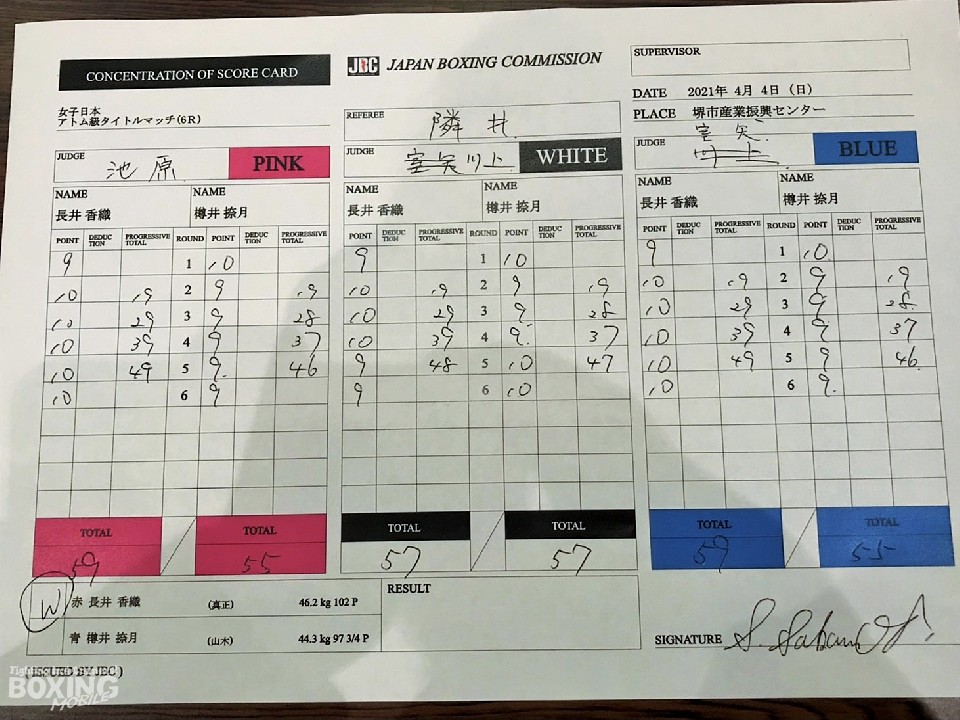 CONCENTRATION OF SCORE CARD
JBC JAPAN BOXING COMMISSION
SUPERVISOR
女子日本
アトム級タイトルマッチ(6R)
REFEREE 隣井
DATE 2021年 4月 4日 (日)
PLACE 堺市産業振興センター
JUDGE 池原 PINK
JUDGE 室矢川上 WHITE
JUDGE 室矢 川上 BLUE
NAME NAME
長井 香織 樽井 捺月
POINT DEDUCTION PROGRESSIVE TOTAL ROUND POINT DEDUCTION PROGRESSIVE TOTAL
9 1 10
10 19 2 9 19
10 29 3 9 28
10 39 4 9 37
10 49 5 9 46
10 6 9
TOTAL TOTAL
59 55
NAME NAME
長井 香織 樽井 捺月
POINT DEDUCTION PROGRESSIVE TOTAL ROUND POINT DEDUCTION PROGRESSIVE TOTAL
9 1 10
10 19 2 9 19
10 29 3 9 28
10 39 4 9 37
9 48 5 10 47
9 6 10
TOTAL TOTAL
57 57
NAME NAME
長井 香織 樽井 捺月
POINT DEDUCTION PROGRESSIVE TOTAL ROUND POINT DEDUCTION PROGRESSIVE TOTAL
9 1 10
10 19 2 9 19
10 29 3 9 28
10 39 4 9 37
10 49 5 9 46
10 6 9
TOTAL TOTAL
59 55
W 赤 長井 香織 (真正) 46.2 kg 102 P
青 樽井 捺月 (山木) 44.3 kg 97 3/4 P
RESULT
SIGNATURE
(ISSUED BY JBC)
BOXING
MOBILE